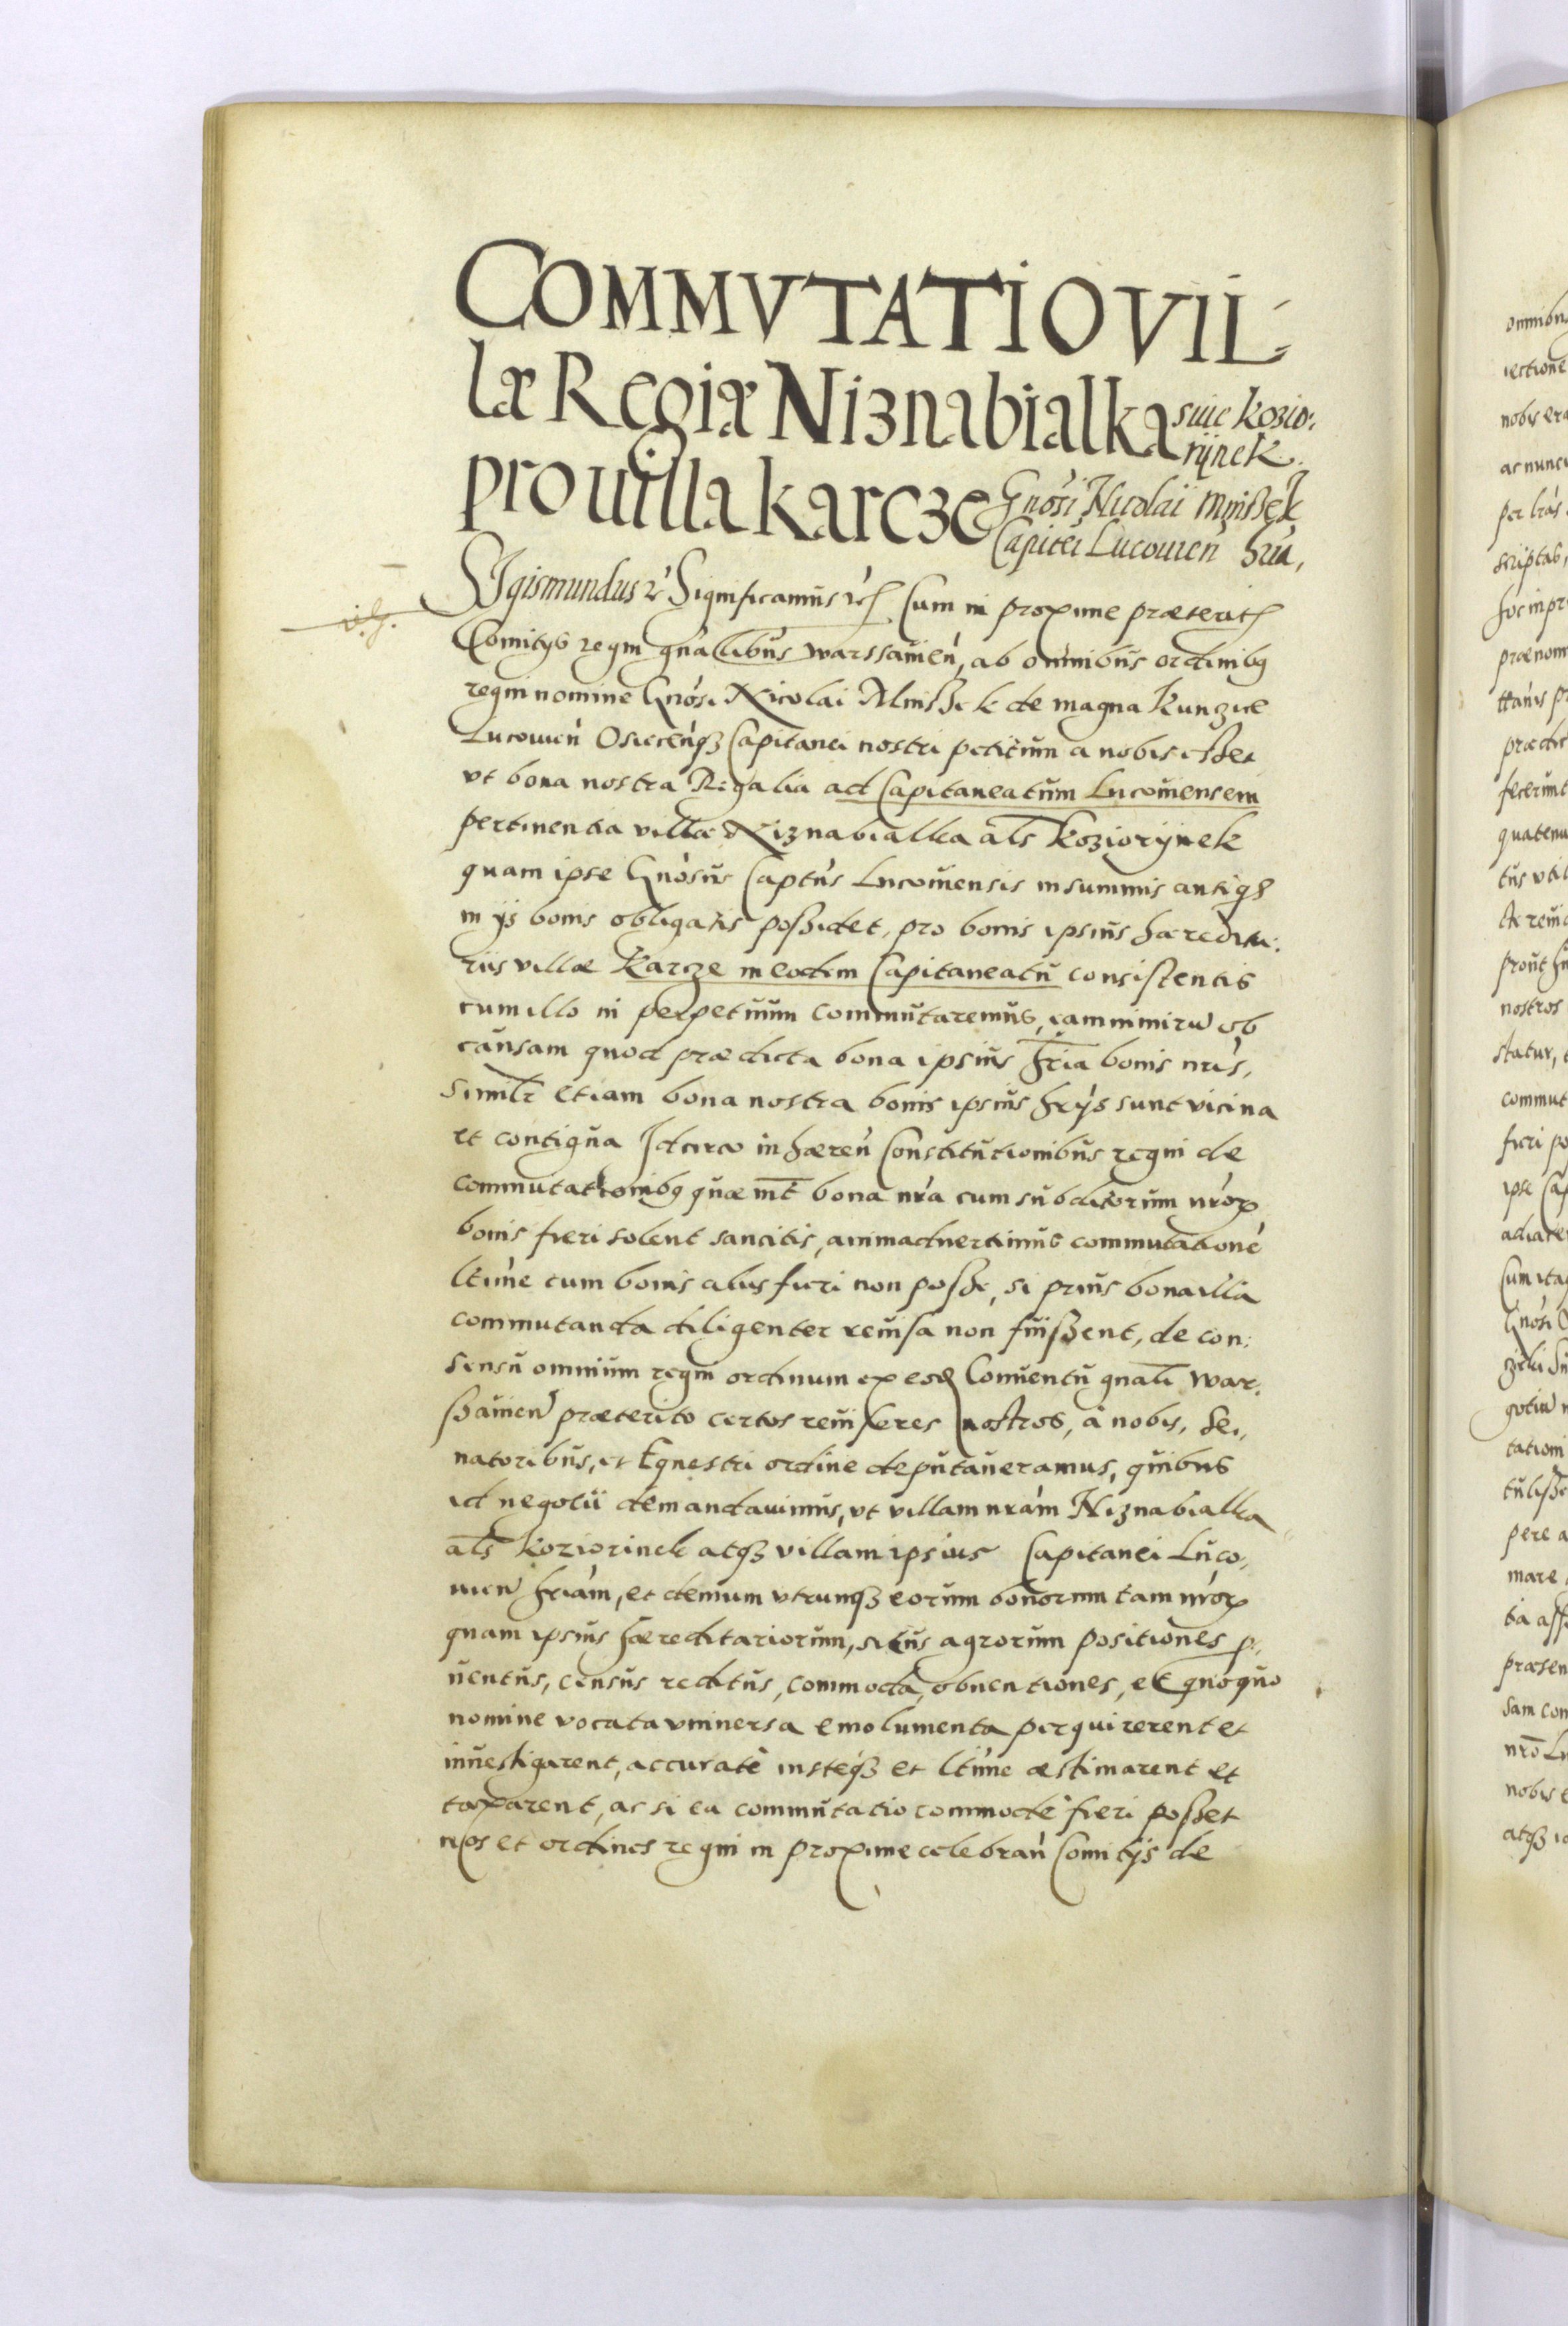 COMMVTATIO VIL
læ Regiæ Niznabialka siue kozio:
rijnek.
pro uilla karcze Gnosi Nicolai Mnissek
Capitei Lucouien hria,
SIgismundus Significamus Cum in proxime præterit
Comitijs regni gnalibus warssauien, ab omnibus ordinibq
regni nomine Gnosi Nicolai Mnissek de magna Kunzice
Lucouien Osiecenqz Capitanei nostri petitum a nobis esset
vt bona nostra Regalia ad Capitaneatum Lucouiensem
pertinentia villæ Niznabialka als Koziorijnek
quam ipse Gnosus Captus Lucouiensis in summis antiqs
in ijs bonis obligatis possidet, pro bonis ipsius hæredita:
riis villæ Karcze in eodem Capitaneatu consistentis
cum illo in perpetuum commutaremus, eam nimiru ob
causam quod prædicta bona ipsius hria bonis nris,
similr etiam bona nostra bonis ipsius hrijs sunt vicina
et contigua Idcirco in hæren Constitutionibus regni de
commutationibq quæ int bona nra cum subditorum nror
bonis fieri solent sancitis, animaduertimus commutatione
ltime cum bonis alijs fieri non posse, si prius bona illa
commutanda diligenter reuisa non fuissent, de con:
sensu omnium regni ordinum ex eod Conuentu gnali War,
ssauien præterito certos reuisores nostros, a nobis, Se,,
natoribus, et Equestri ordine deputaueramus, quibus
id negotii demandauimus, vt villam nram Niznabialka
als Koziorinek atqz villam ipsius Capitanei Luco,
uien hriam, et demum vtrunqz eorum bonorum tam nror
quam ipsius hæreditariorum, situs agrorum positiones p,
uentus, census reditus, commoda, obuentiones, et quoquo
nomine vocata vniuersa emolumenta perquirerent et
inuestigarent, accurate insteqz et ltime æstimarent et
taxarent, ac si ea commutatio commode fieri posset
nos et ordines regni in proxime celebran Comitijs de